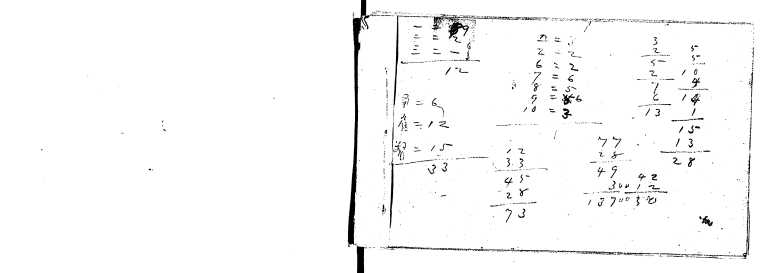 一 = 9
二 = 2
三 = 一
12
= 6
= 12
= 15
33
2 = 2
6 = 2
7 = 6
8 = 5
9 = 6
10 = 3
12
33
45
28
73
3
2
5
2
7
6
13
5
5
10
4
14
1
15
13
28
77
28
49
300
13700
42
12
30